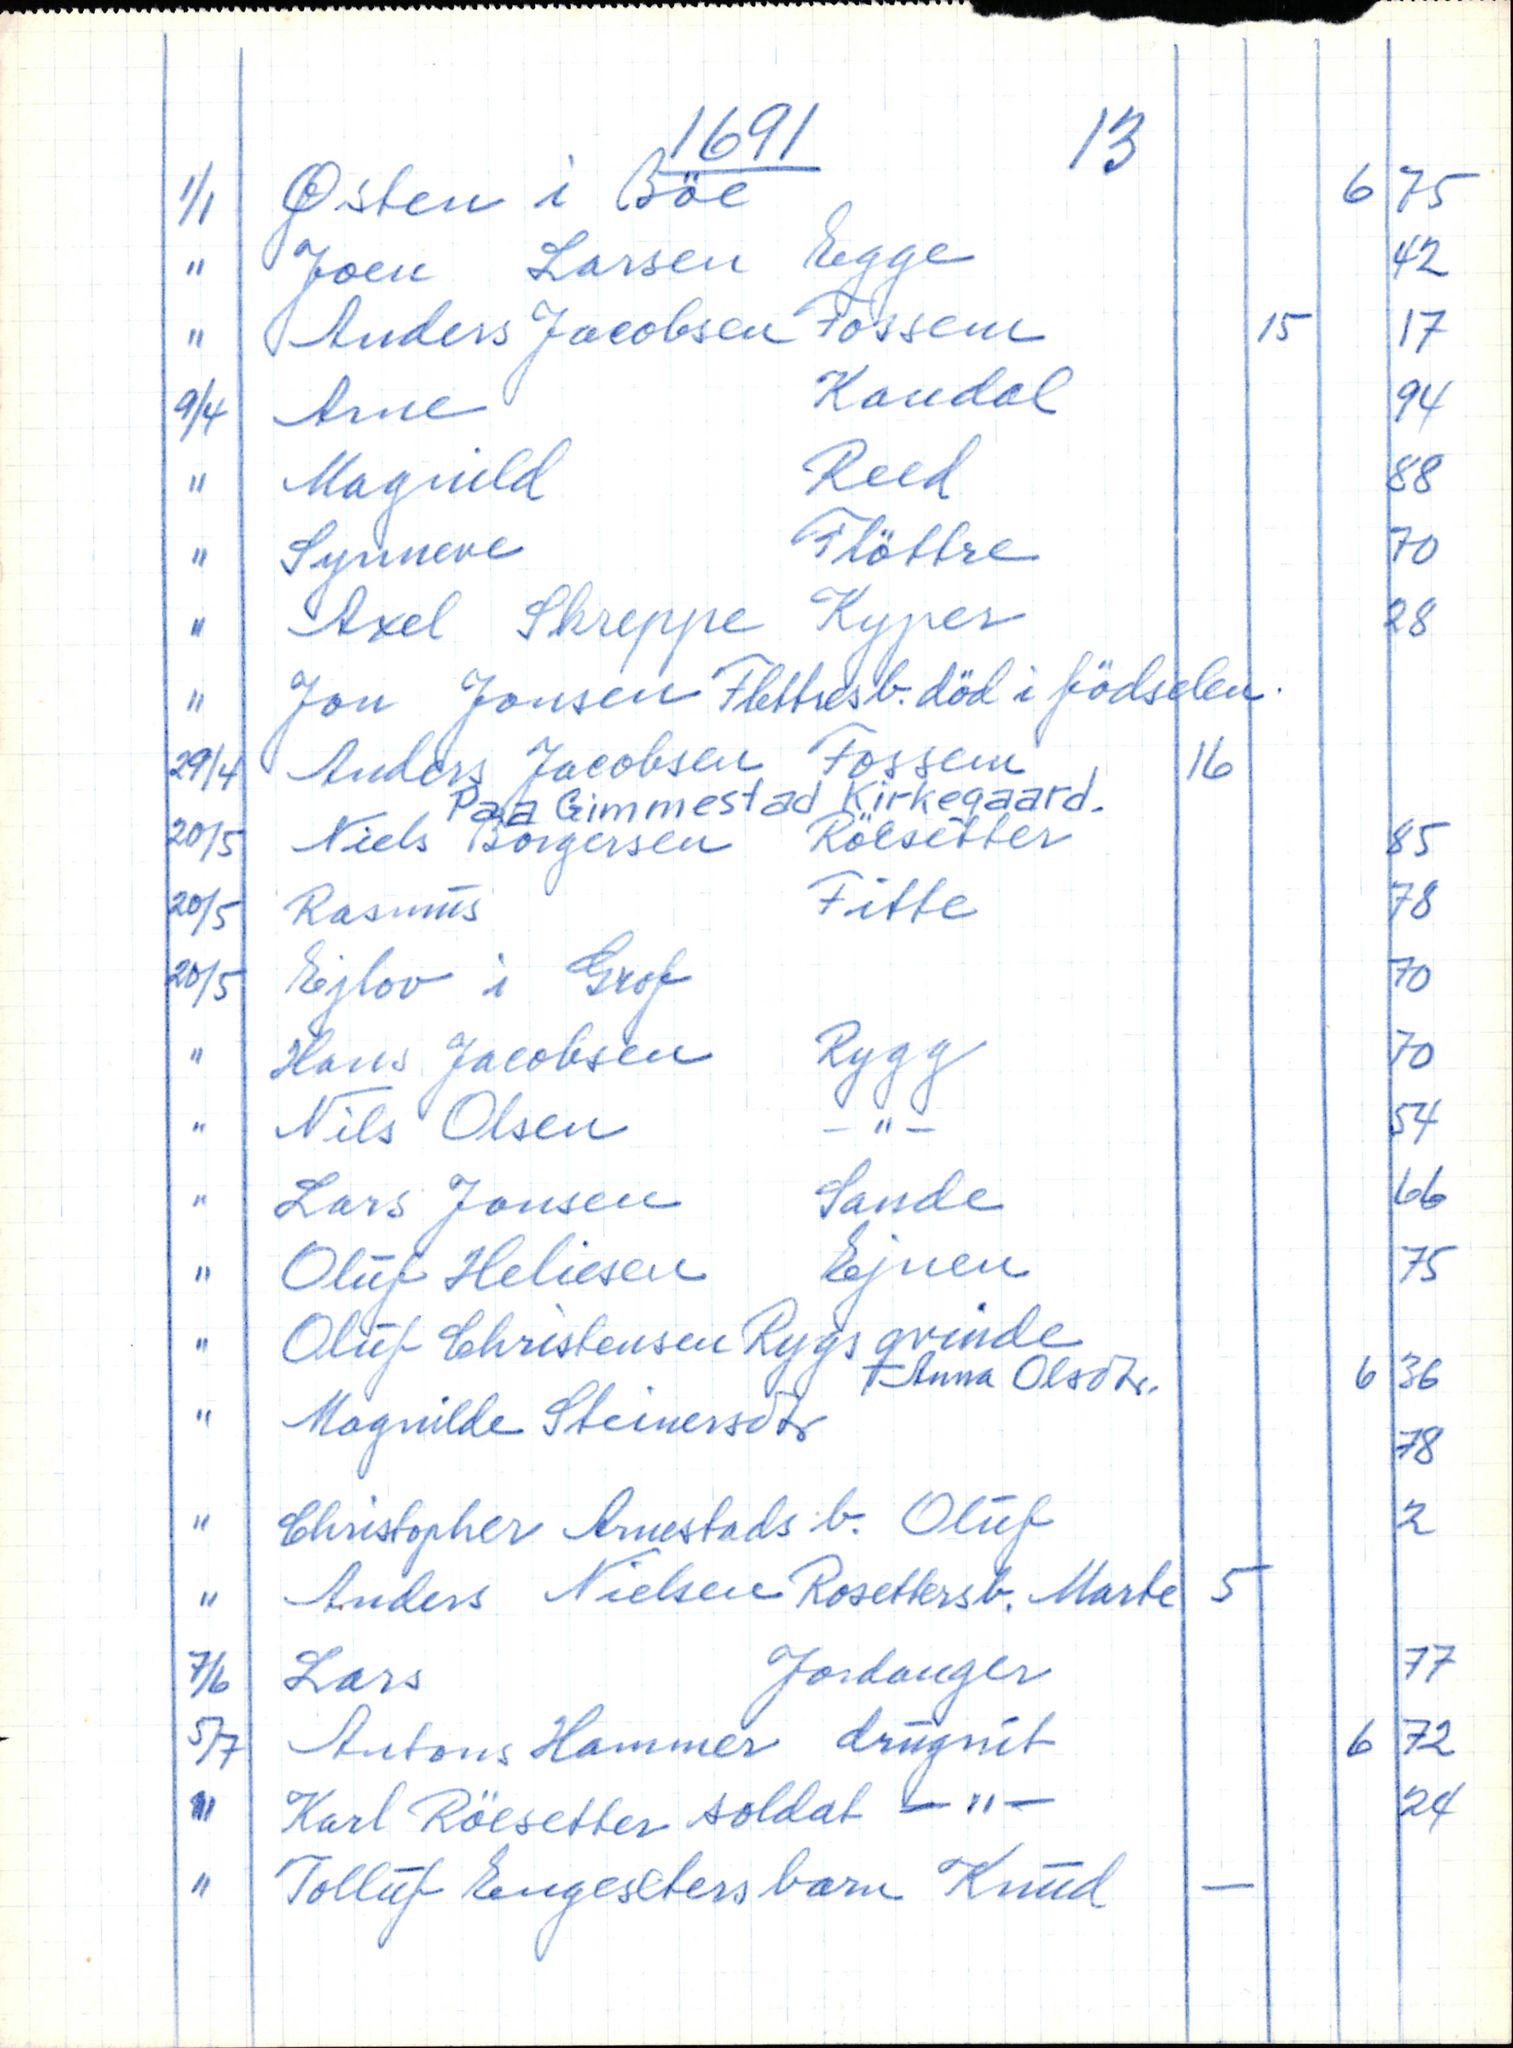 1691 13
1/1 Østen i Böe 6 75
" Joen Larsen Egge 42
" Anders Jacobsen Fossem 15 17
9/4 Arne Kandal 94
" Magnild Reed 88
" Synneve Flöttre 70
" Axel Skreppe Kyper 28
" Jon Jonsen Flettres b. död i födselen.
29/4 Anders Jacobsen Fossem 16
Paa Gimmestad Kirkegaard.
20/5 Niels Borgersen Röesetter 85
20/5 Rasmus Fitte 78
20/5 Ejlov i Grof 70
" Hans Jacobsen Rygg 70
" Nils Olsen – " – 54
" Lars Jonsen Sande 66
" Oluf Heliesen Ejnen 75
" Oluf Christensen Rygs qvinde
Anna Olsdtr. 6 36
" Magnilde Steinersdtr 78
" Christopher Arnestads b. Oluf 2
" Anders Nielsen Rosetters b. Marte 5
7/6 Lars Jordanger 77
5/7 Antons Hammer drugnit 6 72
" Karl Röesetter soldat – " – 24
" Tolluf Engesters barn Knud —